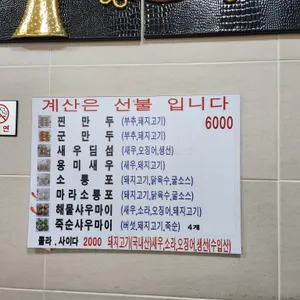 계산은 선불 입니다
6000
찐 만 두 (부추,돼지고기)
군 만 두 (부추,돼지고기)
새 우 딤 섬 (새우,오징어,생선)
용 미 새 우 (새우,돼지고기)
소 룡 포 (돼지고기,닭육수,굴소스)
마라소룡포 (돼지고기,닭육수,굴소스)
해물샤우마이 (새우,소라,오징어,돼지고기)
죽순샤우마이 (버섯,돼지고기,죽순) 4개
콜라 , 사이다 2000 돼지고기(국내산)새우,소라,오징어,생선(수입산)
연